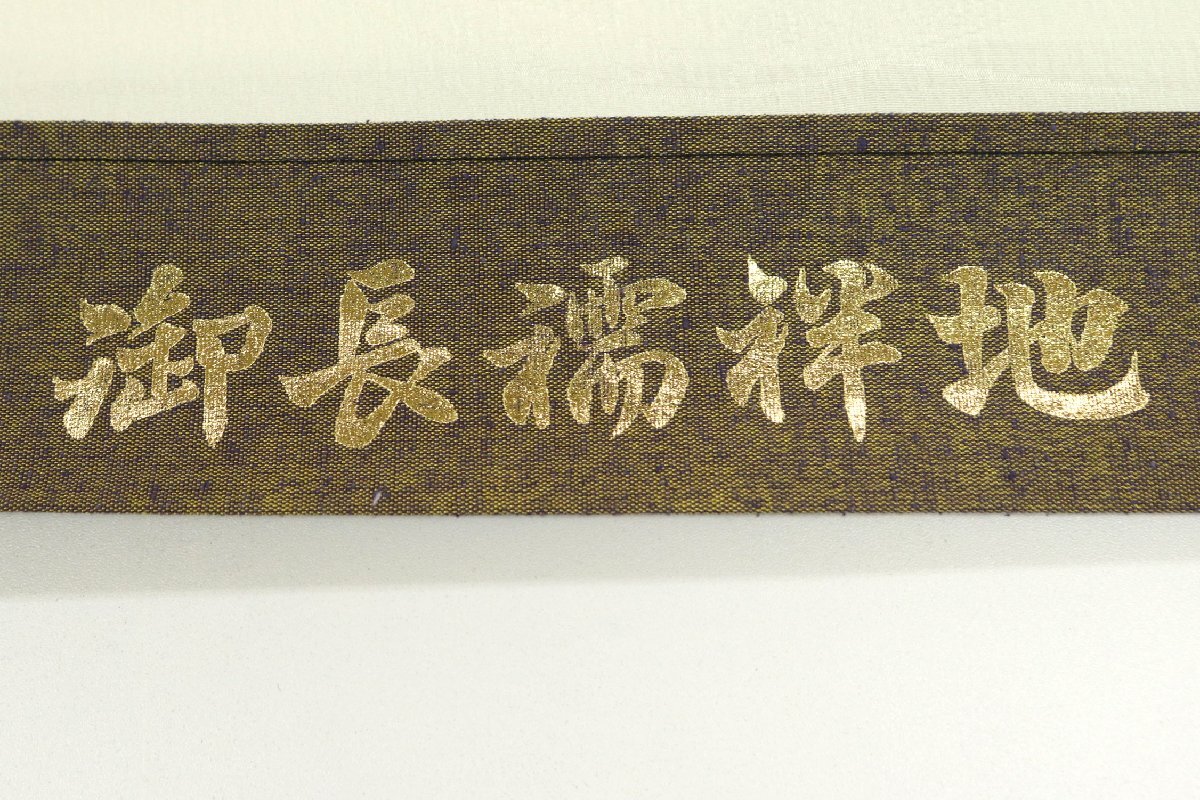 御長襦袢地